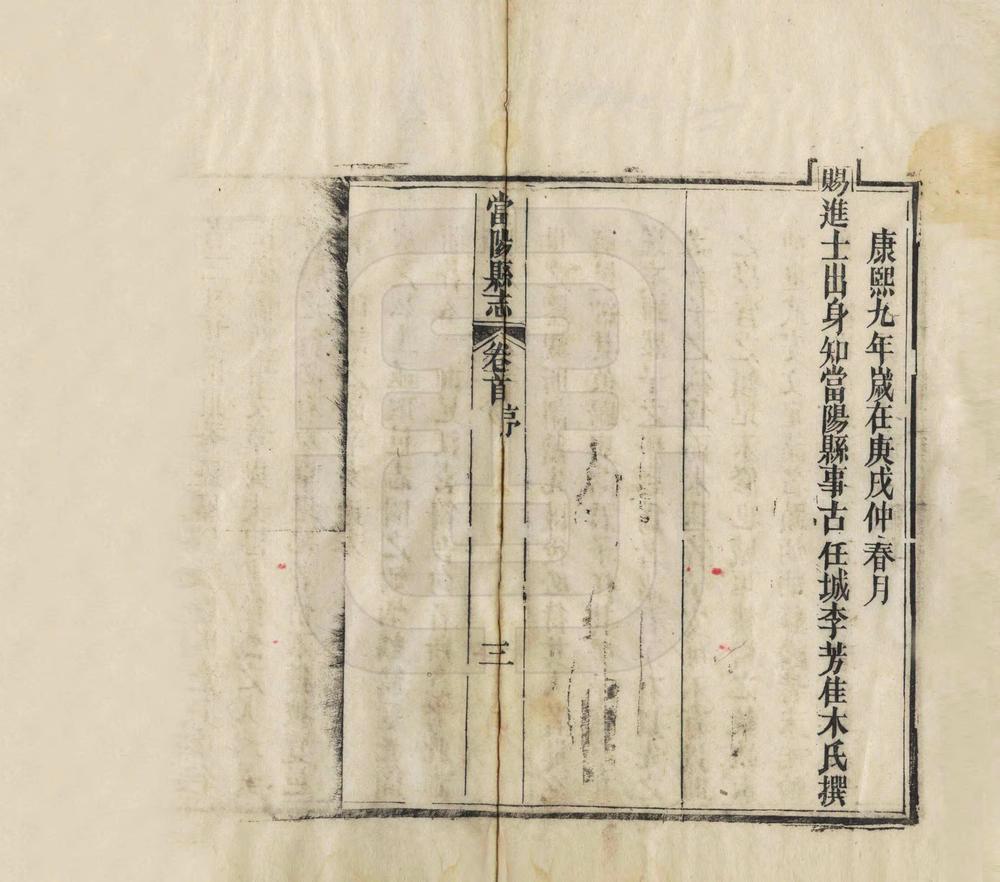 康熙九年歲在庚戌仲春月
賜進士出身知當陽縣事古任城李芳佳木氏撰
當陽縣志 卷首 序 三